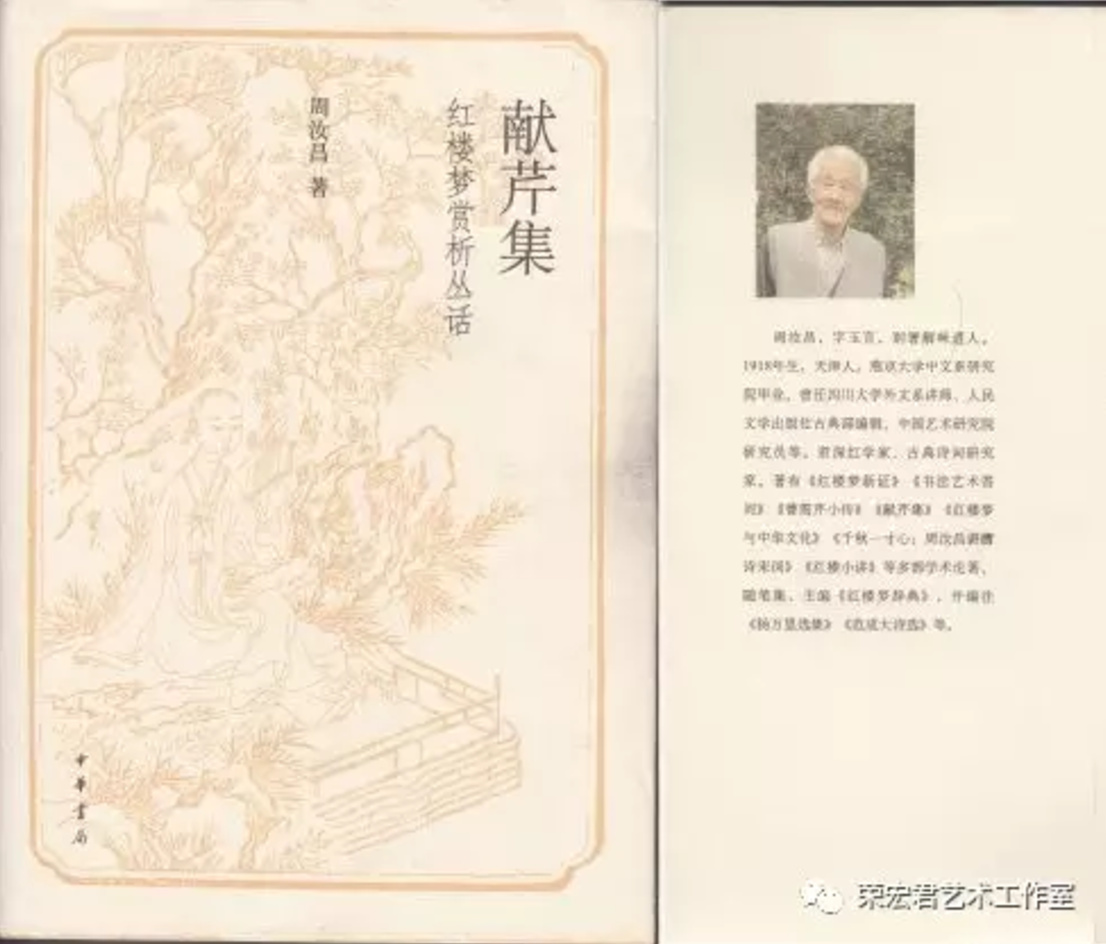 献芹集
红楼梦赏析丛话
周汝昌 著
中华书局
周汝昌，字玉言，别署解味道人。
1918年生，天津人，燕京大学中文系研究
院毕业，曾任四川大学外文系讲师、人民
文学出版社古典部编辑，中国艺术研究院
研究员等。资深红学家、古典诗词研究
家。著有《红楼梦新证》《书法艺术答
问》《曹雪芹小传》《献芹集》《红楼梦
与中华文化》《千秋一寸心：周汝昌讲唐
诗宋词》《红楼小讲》等多部学术论著、
随笔集，主编《红楼梦辞典》，并编注
《杨万里选集》《范成大诗选》等。
荣宏君艺术工作室